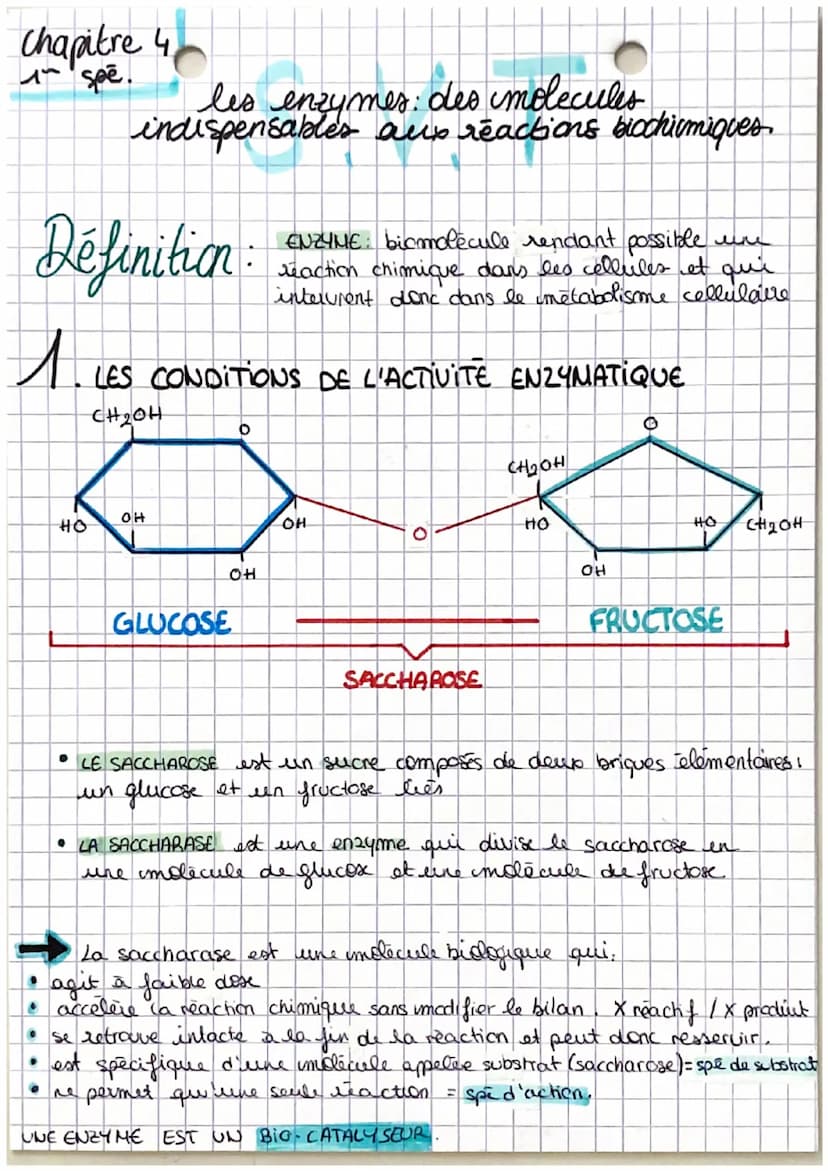 Chapitre 4
1re spé.
S.V.T
les enzymes: des molécules
indispensables aux réactions biochimiques.
Définition :
ENZYME: biomolécule rendant possible une
réaction chimique dans les cellules et qui
intervient donc dans le métabolisme cellulaire
1. LES CONDITIONS DE L'ACTIVITÉ ENZYMATIQUE
CH2OH
O
O
CH2OH
HO
OH
OH
O
HO
HO
CH2OH
OH
OH
GLUCOSE
FRUCTOSE
SACCHAROSE
• LE SACCHAROSE est un sucre composés de deux briques élémentaires:
un glucose et un fructose liés
• LA SACCHARASE est une enzyme qui divise le saccharose en
une molécule de glucose et une molécule de fructose
→ La saccharase est une molécule biologique qui:
• agit à faible dose
• accélère la réaction chimique sans modifier le bilan. X réactif / X produit
• se retrouve intacte à la fin de la réaction et peut donc resservir.
• est spécifique d'une molécule appelée substrat (saccharose)= spé de substrat
• ne permet qu'une seule réaction = spé d'action.
UNE ENZYME EST UN BIO-CATALYSEUR.